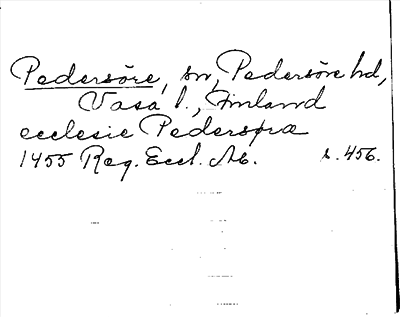 Pedersöre, sn, Pedersöre hd,
Vasa l., Finland
ecclesie Pedersøræ
1455 Reg. Eccl. Ab. s. 456.